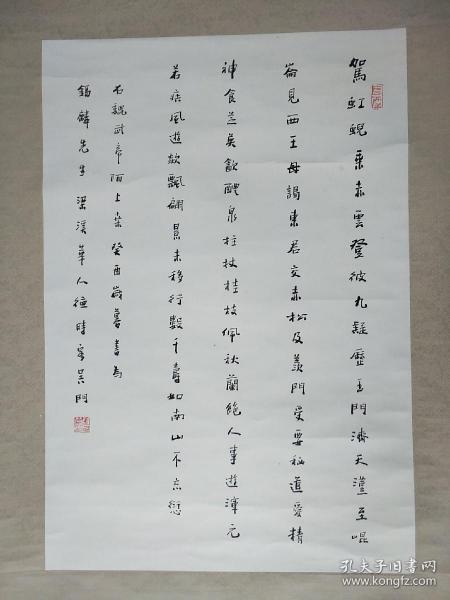 駕虹蜺乘赤雲登彼九疑歷玉門濟天漢至崐
崙見西王母謁東君交赤松及羨門受要秘道愛精
神食芝英飲醴泉柱杖桂枝佩秋蘭絶人事遊渾元
若疾風遊歘飄翩景未移行數千壽如南山不忘愆
右魏武帝陌上桑癸酉歲暮書為
錫麟先生梁溪華人德時客吳門
孔夫子旧书网
www.kongfz.com